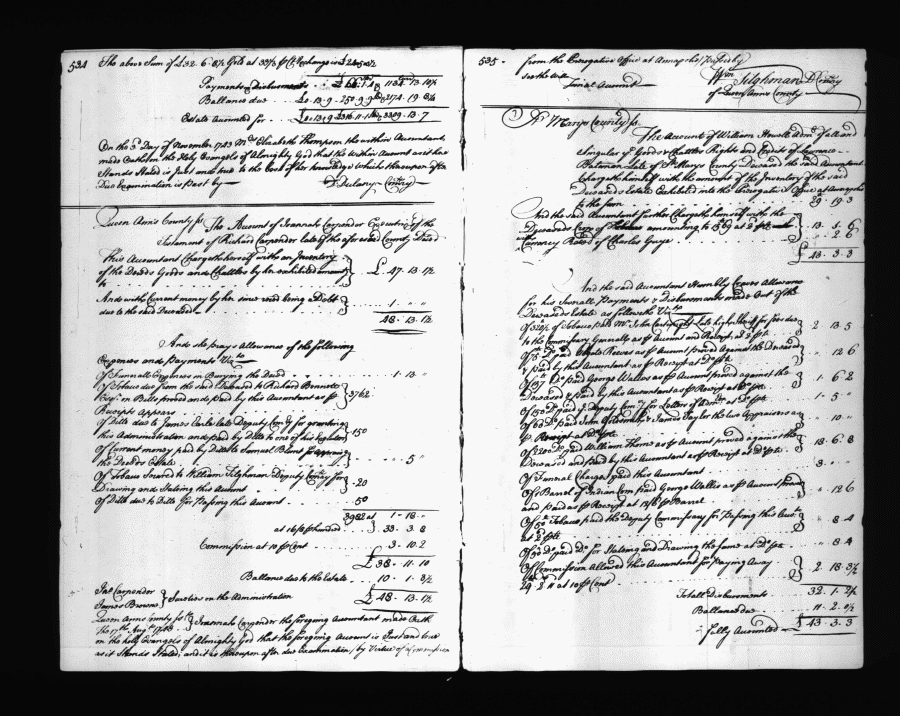 534 The above Sum of £32. 6. 8½ Gold at 33⅓ pCt Exchange is £24
Payments & Disbursments
Ballance due
Estate Accounted for
On the 3d Day of November 1743 Mrs Elizabeth Thompson the within Accountant
made Oath on the Holy Evangels of Almighty God that the within Account as it here
Stands Stated is Just and true to the best of her knowledge which thereupon after
Due Examination is past by
D Dulany Comry
Queen Ann's County ss The Account of Jeannah Carpender Executrix of the
Testament of Richard Carpender late of the aforesaid County Deced
This Accountant Chargeth herself with an Inventory
of the Deced's Goods and Chattles by her exhibited amounts
to £ 47. 13. 1½
And with Current money by her since reced being a Debt
due to the said Deceased 1 " "
48. 13. 1½
And she prays allowance of the following
Expences and Payments Vizt
Of Funerall Expences in Burying the Deced 1. 13 "
Of Tobacco due from the said Deceased to Richard Bennett
Esqr. in Bills proved and paid by this Accountant as p 3762
Receipts Appears
Of Ditto due to James Earle late Deputy Comry for granting
this Administration and paid by Ditto to one of his 150
Of Current money paid by Ditto to Samuel Blunt for appraising
the Deced's Estate " 5 "
Of Tobacco Secured to William Tilghman Deputy Comry for
Drawing and Stateing this Account 20
Of Ditto due to Ditto for Passing this Account 50
3982 at 1 - 18 "
at 16/8 p hundred 33. 3. 8
Commission at 10 p Cent 3. 10. 2
£ 38. 11. 10
Ballance due to the Estate 10. 1. 3½
Jas Carpender
James Browne Sureties on the Administration £ 48. 13. 1½
Queen Anns County ss Jeannah Carpender the foregoing Accountant made Oath
the 17th Augt 1743
on the holy Evangels of Almighty God that the foregoing Account is Just and true
as it Stands Stated, and it is thereupon after due Examination, by Virtue of a Commission
535. from the Prerogative Office at Annapolis
See the Will Wm Tilghman D Comry
Finial Account of Queen Anns County
St Marys County ss.
The Account of William Howell Admr of all and
Singular ye Goods & Chattles Right and Credits of Lawrence
Bateman Late of St Marys County Deceased the said Accountant
Chargeth himself with the amount of the Inventory of the said
Deceaseds Estate Exhibited into the Prerogative Office at Annapolis
to the Sum 29 19 3
And the said Accountant further Chargeth himself with the
Deceaseds Crop of Tobacco amounting to 1569 at 2d p lb 13. 1. 6
Currency Reced of Charles " 2 6
£ 43. 3. 3
And the said Accountant Humbly Craves Allowance
for his Severall Payments & Disbursments made Out of the
Deceaseds Estate as followeth Vizt
Of 320 lb of Tobacco paid Mr John Late high Sheriff for fees due
to the Commissary Generall as p Account and Receipt, at 2d p lb 2 13. 5
Of 75 Do paid Reeves as p Account proved Against the Deceased
& paid by this Accountant as p Receipt at Do p lb " 12 6
Of 157 Do paid George Walters as p Account proved against the
Deceased & Paid by this Accountant as p Receipt at Do p lb 1. 6. 2
Of 150 Do paid ye Deputy Comry for Letters of Admn at Do p lb 1. 5 "
Of 60 Do paid John & James Taylor the two Appraisers as
p Receipt at Do p lb " 10 "
Of 2200 Do paid William Thomas as p Account proved against the
Deceased and paid by this Accountant as p Receipt at Do p lb 18. 6. 8
Of Funeral Charges paid this Accountant 3. " "
Of Barrel of Indian Corn paid George Wallis as p Account proved
and paid as p Receipt at 12/6 p Barrel " 12 6
Of 50 lb Tobacco paid the Deputy Commissary for Passing this Acct
at 2d p lb " 8. 4
Of Do paid Do for Stateing and Drawing the same at Do p lb " 8 4
Of Commission Allowed this Accountant for Paying Away
at 10 p Cent 2 18. 3½
Total Disbursments 32. 1. 2½
Ballance due 11. 2. 0½
£ 43. 3. 3
fully Accounted